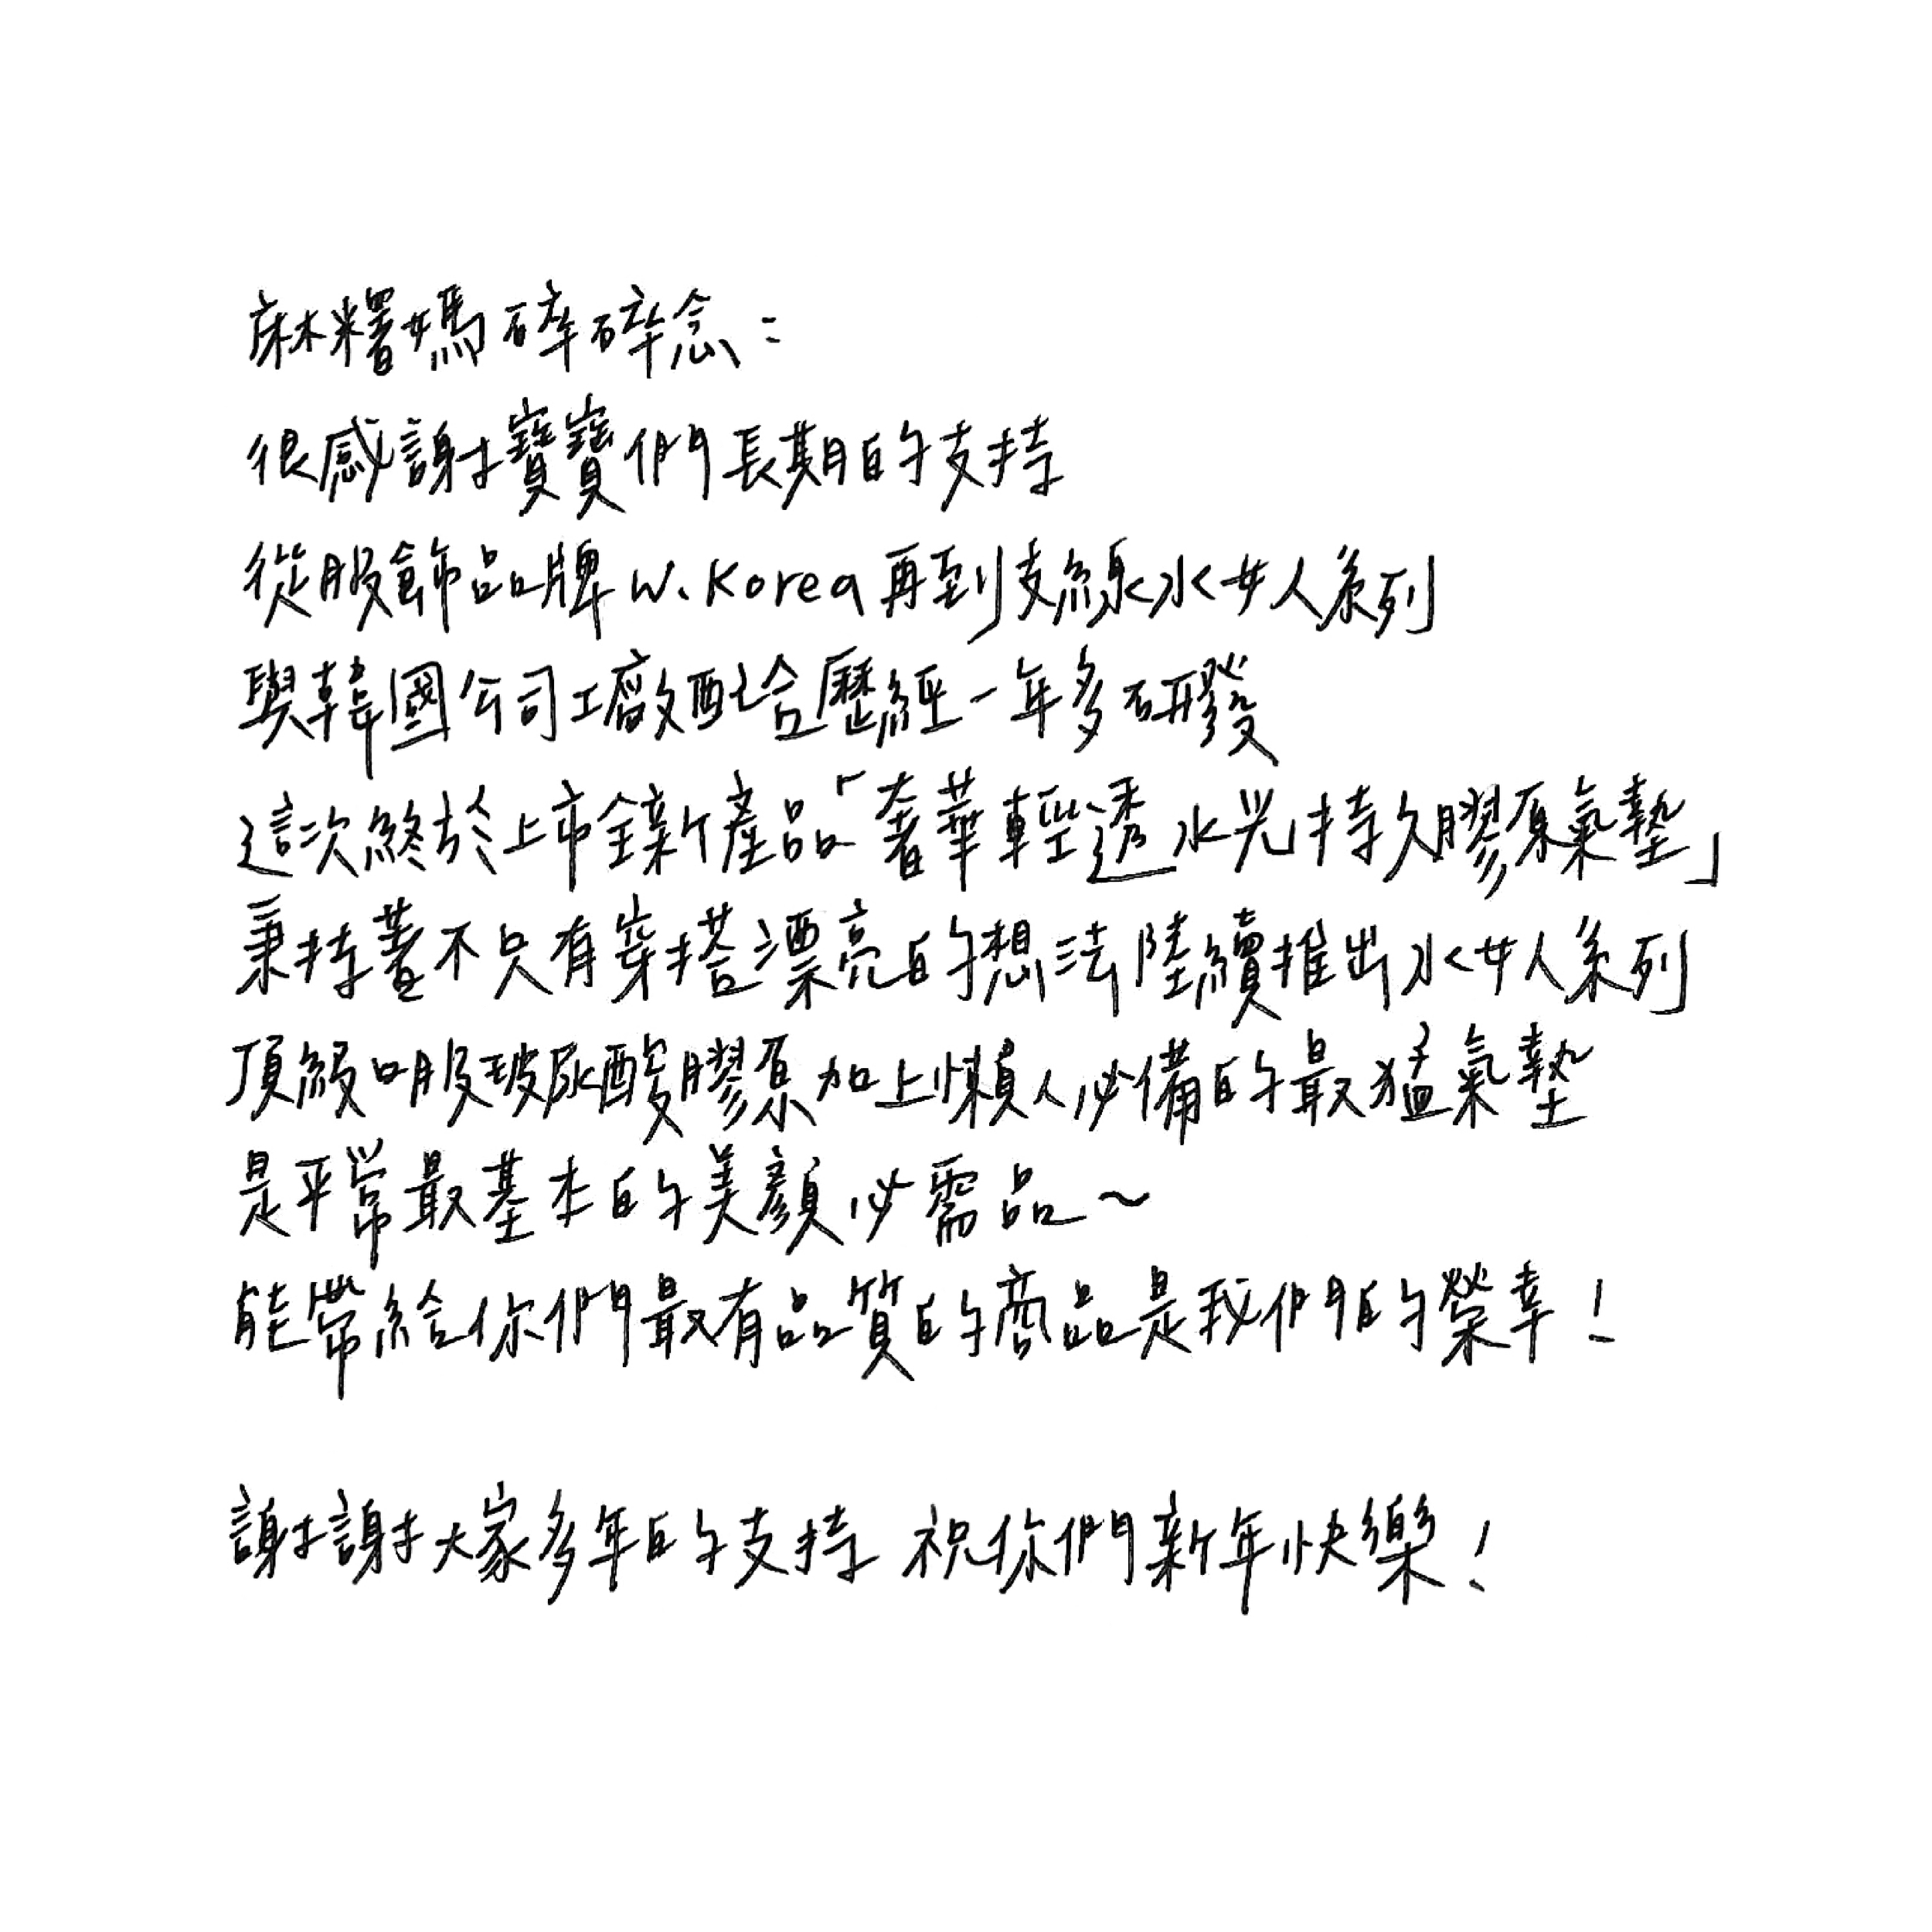 麻糬媽碎碎念：
很感謝寶寶們長期的支持
從服飾品牌W.Korea再到支線水女人系列
與韓國公司工廠配合歷經一年多研發
這次終於上市全新產品「奢華輕透水光持久膠原氣墊」
秉持著不只有穿搭漂亮的想法陸續推出水女人系列
頂級口服玻尿酸膠原加上懶人必備的最猛氣墊
是平常最基本的美顏必需品~
能帶給你們最有品質的商品是我們的榮幸！
謝謝大家多年的支持 祝你們新年快樂！